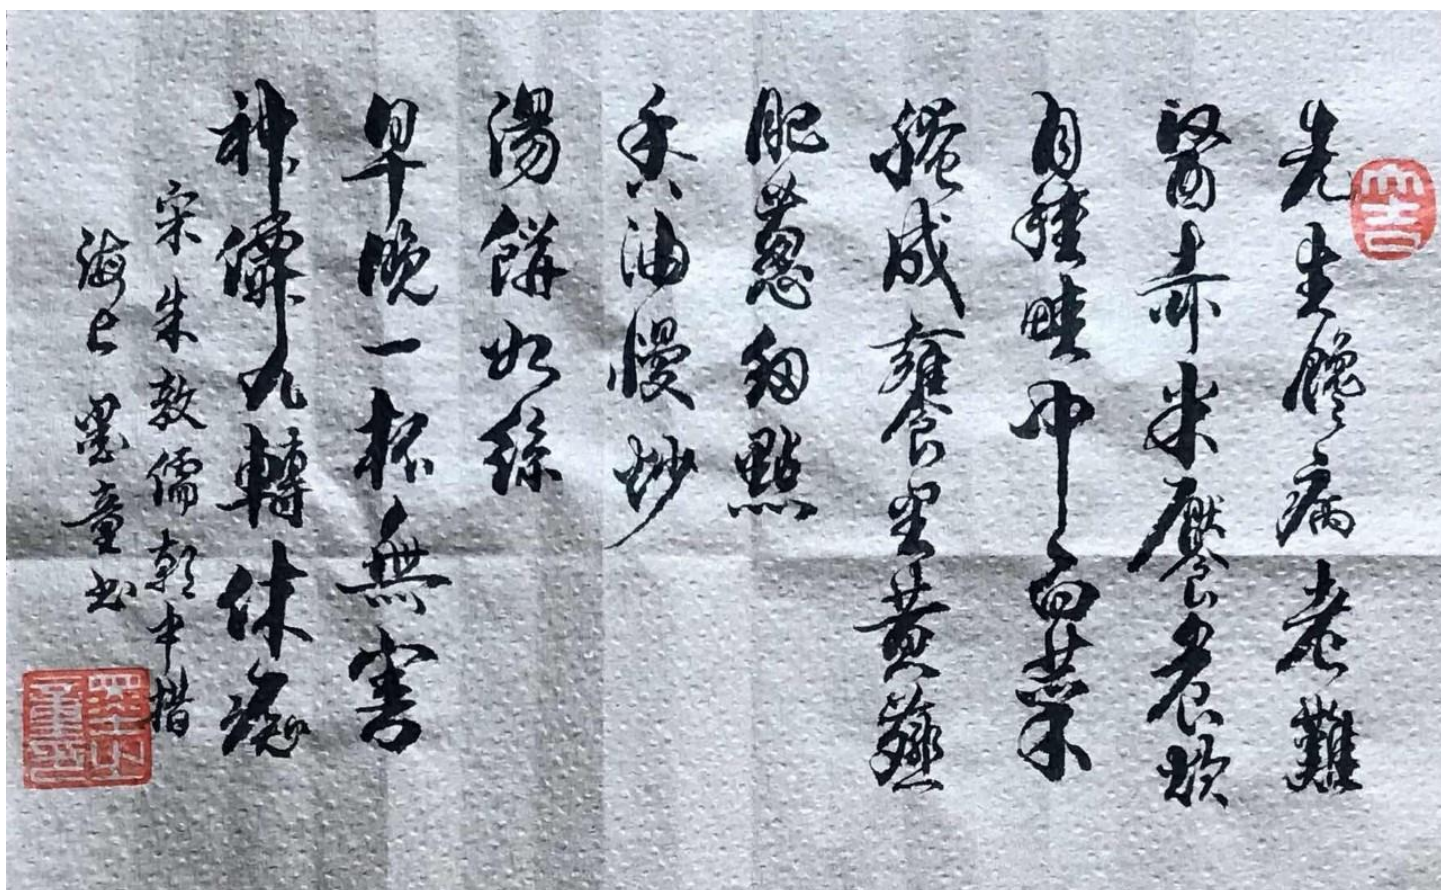 先生饞病老難
醫赤米饜晨炊
自種畦中白菜
醃成甕裏黃虀
肥蔥細點
香油慢炒
湯餅如絲
早晚一杯無害
神僊九轉休癡
宋朱敦儒朝中措
海上墨童书
大吉